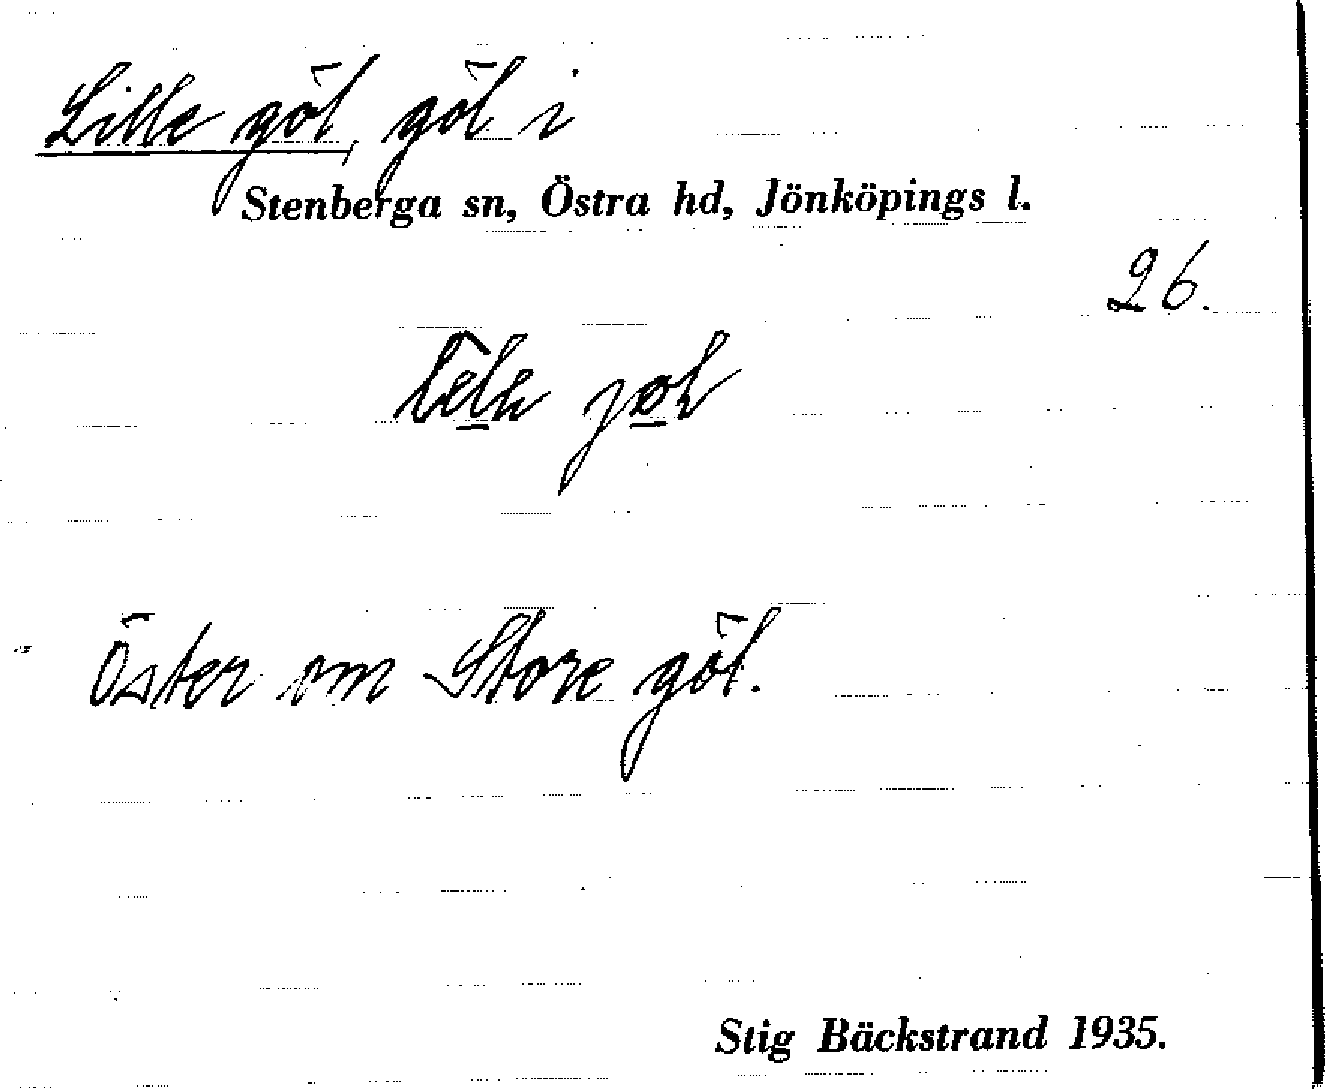 Lille göl, göl i
Stenberga sn, Östra hd, Jönköpings l.
26.
Öster om Store göl.
Stig Bäckstrand 1935.